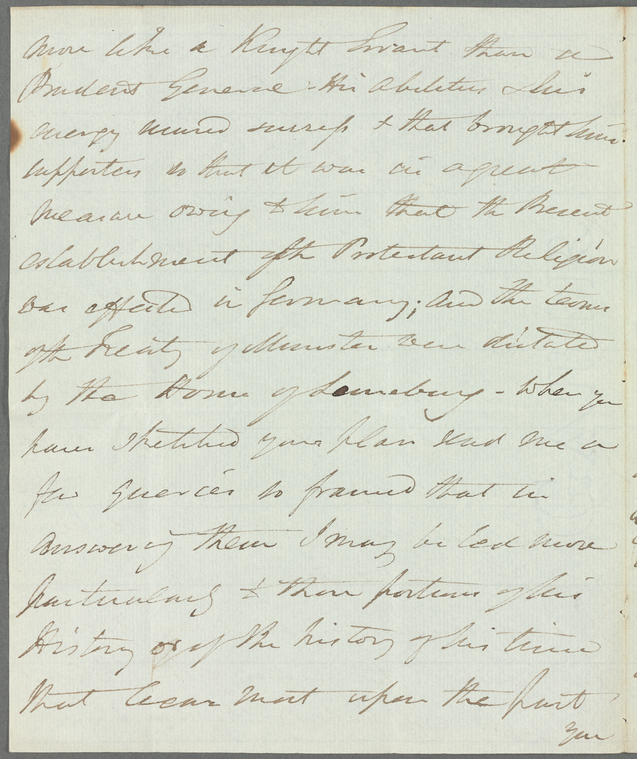 more like a Knight Errant than a
Prudent General - His Abilities & his
energy insured success & that brought him
supporters so that it was in a great
measure owing to him that the Present
establishment of the Protestant Religion
was effected in Germany; and the terms
of the Treaty of Munster were dictated
by the House of Luneburg - When you
have sketched your plan send me a
few queries so framed that in
answering them I may be led more
particularly to those portions of his
History or of the history of his time
that bear most upon the part
you